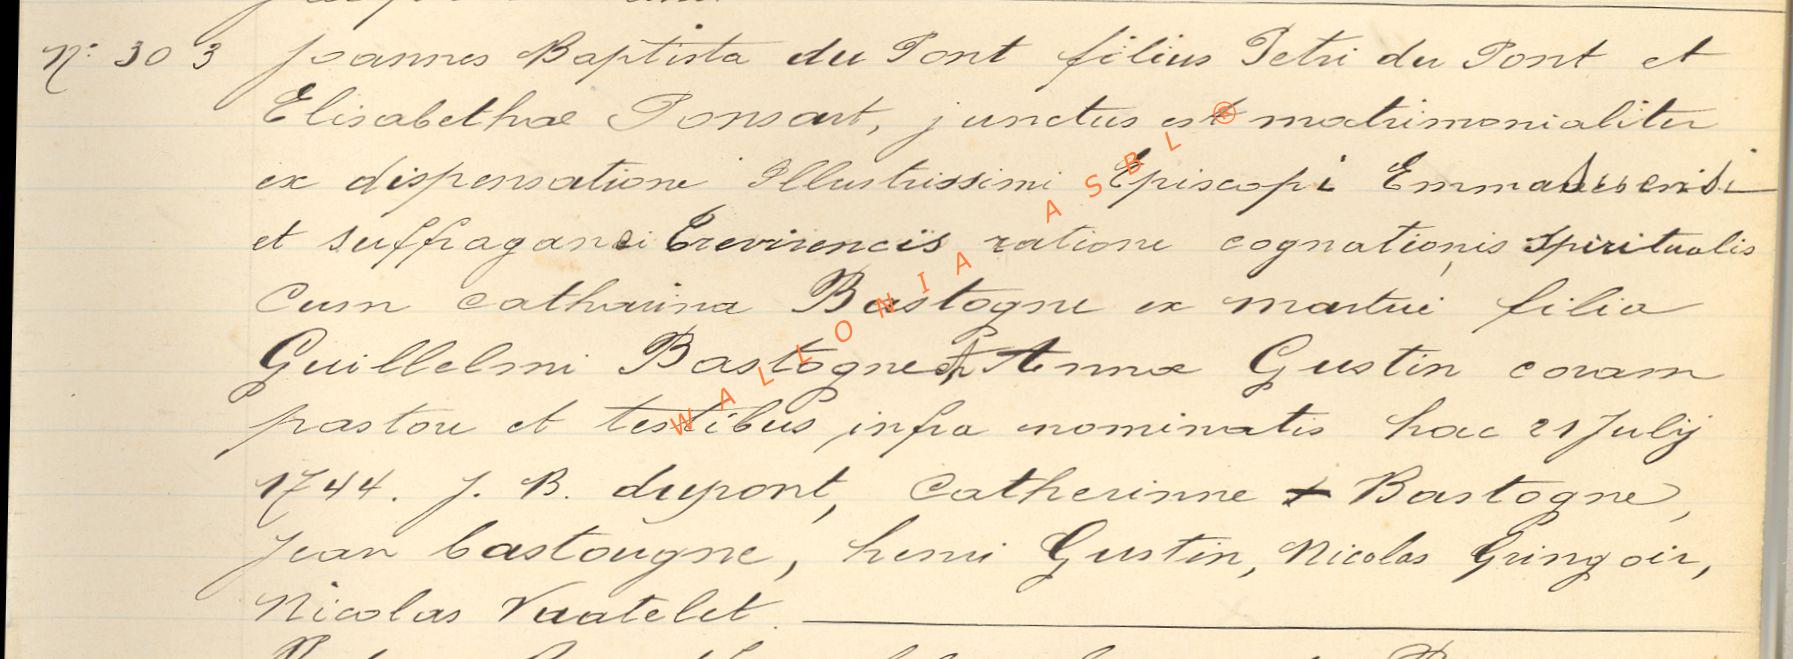 N° 303 Joannes Baptista du Pont filius Petri du Pont et
Elisabethae Ponsart, junctus est matrimonialiter
ex dispensatione Illustrissimi Episcopi Emmausensi
et suffraganei Trevirencis ratione cognationis Spiritualis
Cum catharina Bastogne ex martui filia
Guillelmi Bastogne et Annae Gustin coram
pastore et testibus infra nominatis hac 21 Julij
1744. J. B. dupont, Catherinne + Bastogne,
Jean bastougne, henri Gustin, Nicolas Gringoir,
Nicolas Vuatelet.
WALLONIA ASBL ®